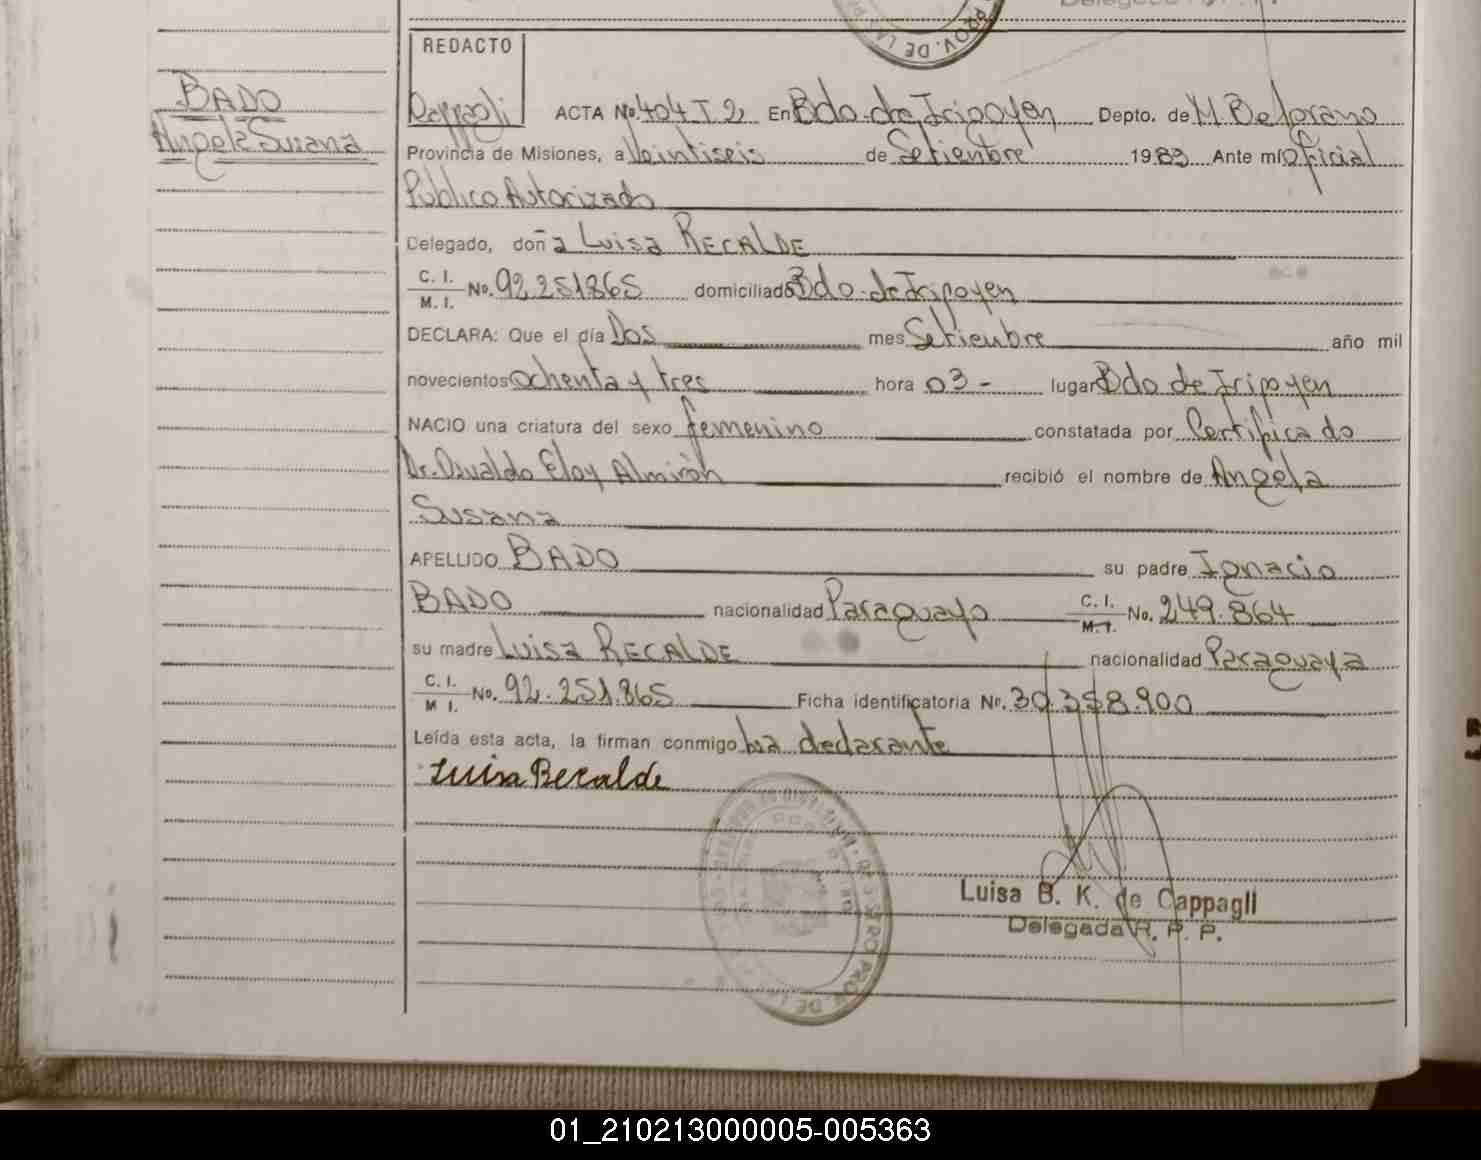 Delegada R. P. P.
PROV. DE LA
REDACTO
Cappagli
BADO
Angela Susana
ACTA No. 404 T 2 En Bdo. de Irigoyen Depto. de M. Belgrano
Provincia de Misiones, a Veintiseis de Setiembre 1983 Ante mí Oficial
Público Autorizado
Delegado, doña Luisa RECALDE
C. I. M. I. No. 92.251865 domiciliado Bdo. de Irigoyen
DECLARA: Que el día Dos mes Setiembre año mil
novecientos ochenta y tres hora 03- lugar Bdo de Irigoyen
NACIO una criatura del sexo femenino constatada por Certificado
Dr. Osvaldo Eloy Almirón recibió el nombre de Angela
Susana
APELLIDO BADO su padre Ignacio
BADO nacionalidad Paraguayo C. I. M. I. No. 249.864
su madre Luisa RECALDE nacionalidad Paraguaya
C. I. M I. No. 92.251.865 Ficha identificatoria No. 30.358.900
Leída esta acta, la firman conmigo la declarante
Luisa Recalde
Luisa B. K. de Cappagli
Delegada R. P. P.
01_210213000005-005363